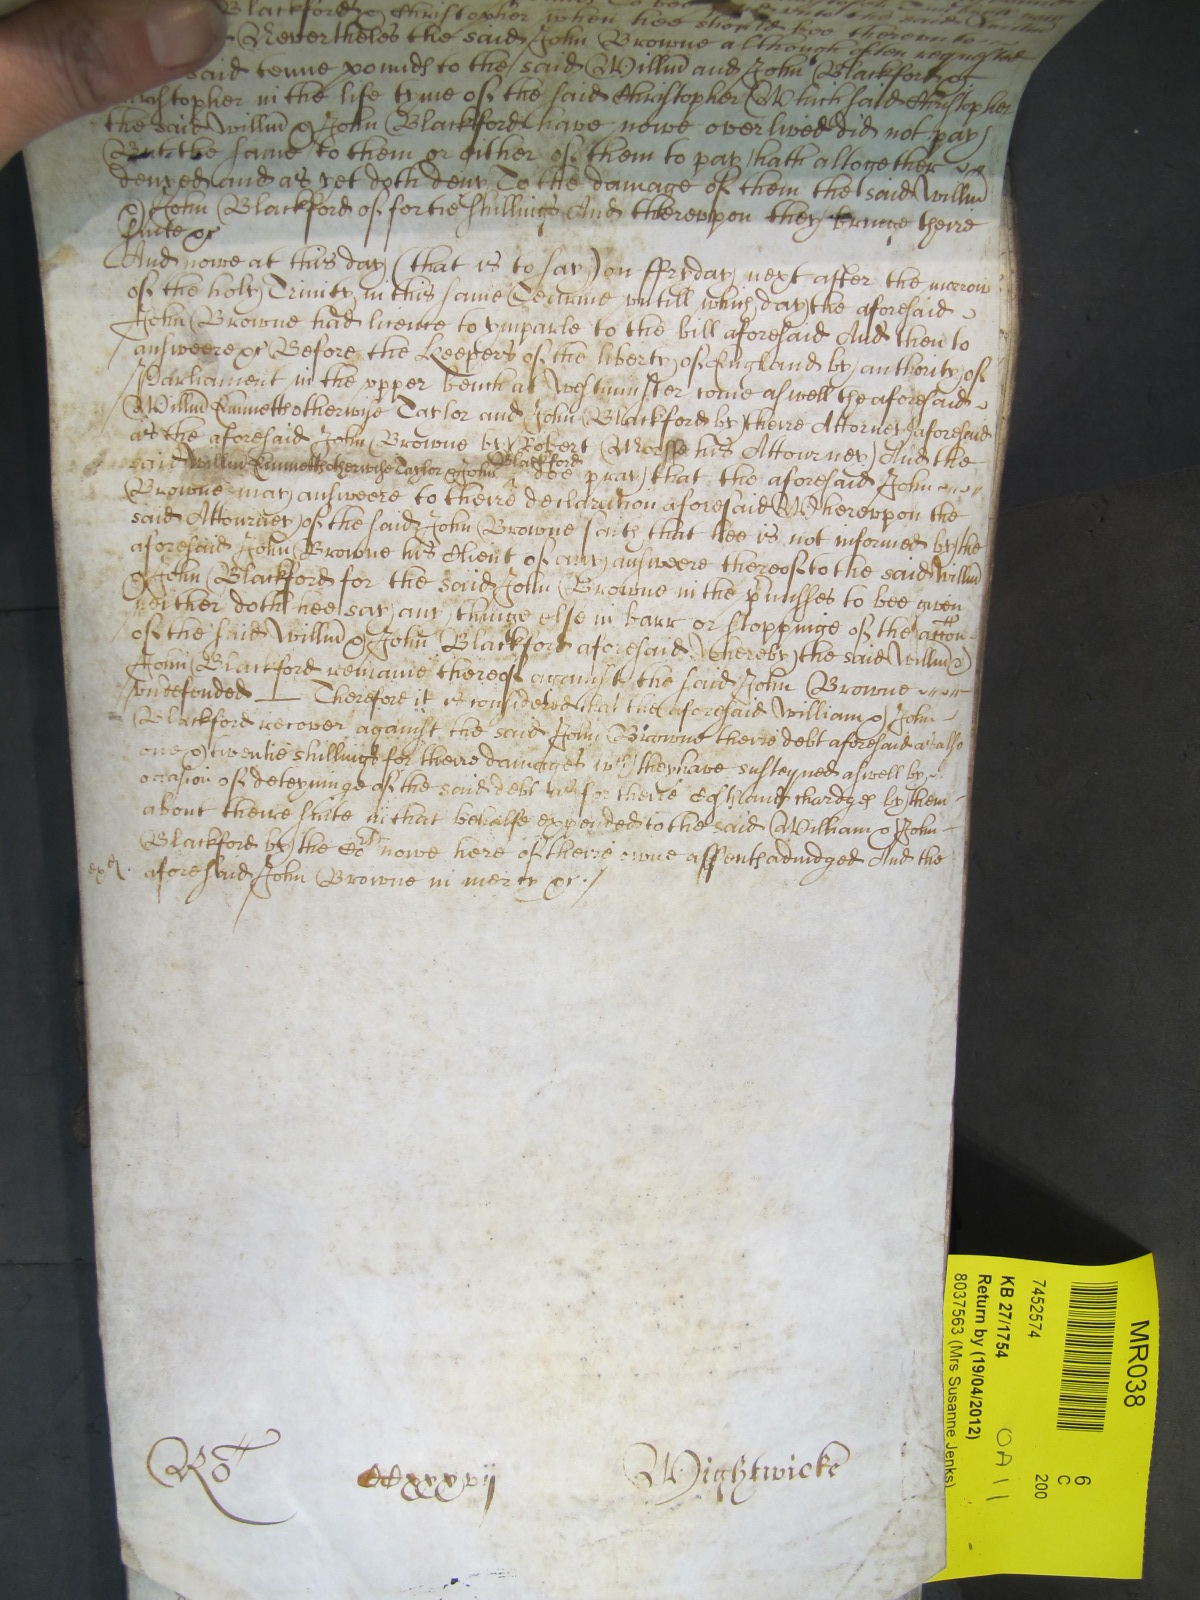 Blackford & Christopher when hee should bee thereunto
Neverthelesse the said John Browne although often requested
said tenne pounds to the said Willm and John Blackford &
Christopher in the life tyme of the said Christopher Which said Christopher
the said Willm & John Blackford have nowe overlived did not pay
But the same to them or either of them to pay hath altogether
denyed and as yet doth deny To the damage of them the said Willm
& John Blackford of fortie shillings And thereupon they bringe theire
suite &c
And nowe at this day (that is to say) on ffryday next after the morrow
of the holy Trinity in this same Tearme untill which day the aforesaid
John Browne had licence to imparle to the bill aforesaid And then to
answeere &c Before the Keepers of the liberty of England by authority of
Parliament in the upper bench at Westminster come aswell the aforesaid
Willm Emmett otherwise Taylor and John Blackford by theire Attorney aforesaid
as the aforesaid John Browne by Robert Morsse his Attourney And the
said Willm Emmett otherwise Taylor & John Blackford doe pray that the aforesaid John
Browne may answeere to theire declaration aforesaid Whereupon the
said Attourney of the said John Browne saith that hee is not informed by the
aforesaid John Browne his Client of any answeere thereof to the said Willm
& John Blackford for the said John Browne in the p'misses to bee given
neither doth hee say any thinge else in barr or stoppinge of the acc'on
of the said Willm & John Blackford aforesaid Whereby the said Willm &
John Blackford remaine thereof against the said John Browne
undefended Therefore it is considered that the aforesaid William & John
Blackford recover against the said John Browne theire debt aforesaid as also
one & twentie shillings for theire damages wch they have susteyned aswell by
occasion of deteyninge of the said debt as for theire Costs and chardges by them
about theire suite in that behalfe expended to the said William & John
Blackford by the Cort nowe here of theire owne assent adiudged And the
exr. aforesaid John Browne in mercy &c
Ro ccxxxvij Wightwicke
MR038
6
C
200
7452574
KB 27/1754
OA11
Return by (19/04/2012)
8037563 (Mrs Susanne Jenks)